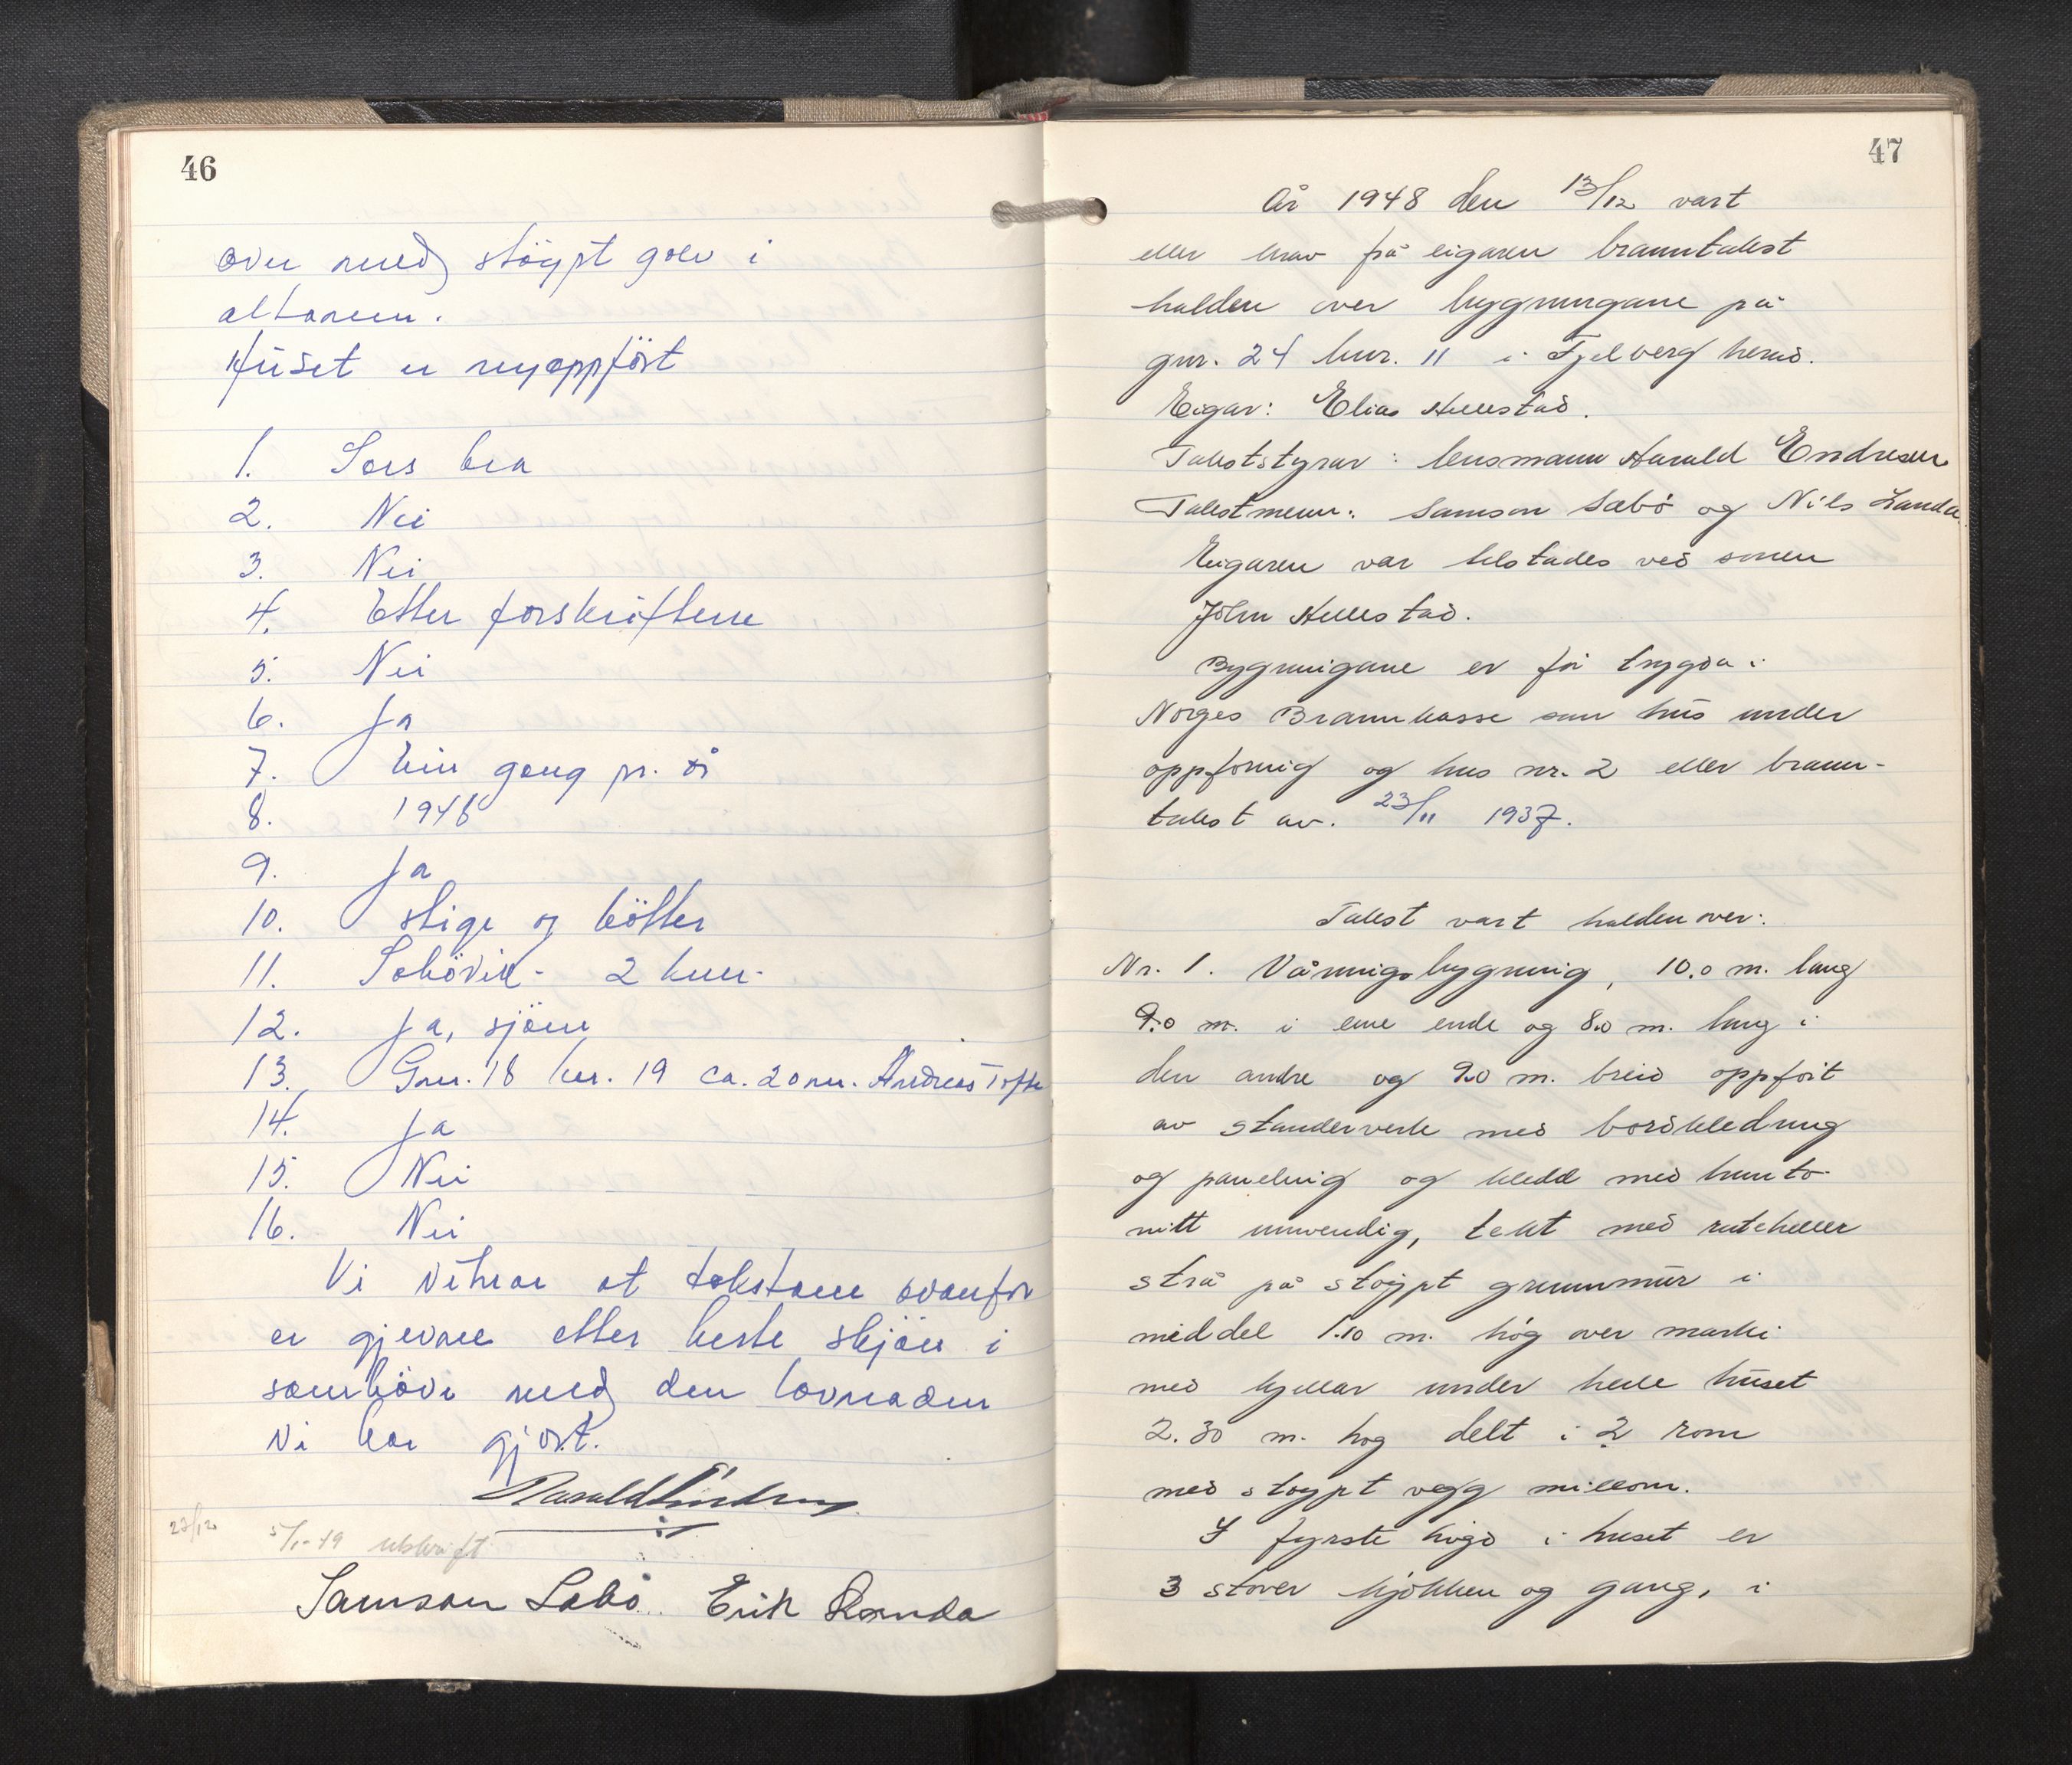 46
over med støypt golv i
altanen.
Huset er nyoppført
1. Sers bra
2. Nei
3. Nei
4. Etter forskriftene
5. Nei
6. Ja
7. Ein gong pr. år
8. 1948
9. Ja
10. Stige og bøtter
11. Sæbövik - 2 km.
12. Ja, sjøen
13. Gnr. 18 bnr. 19 ca. 20 m. Andreas Tofte
14. Ja
15. Nei
16. Nei
Vi vitnar at takstane ovanfor
er gjevne etter beste skjøn i
samhøve med den lovnaden
vi har gjort.
Harald Endresen
23/12 5/1-49 utskrift
Samson Sæbø. Erik Landa
47
År 1948 den 13/12 vart
etter krav frå eigaren branntakst
halden over bygningane på
gnr. 24 bnr. 11 i Fjelberg herad.
Eigar: Elias Hellestad.
Takststyrar: lensmann Harald Endresen
Takstmenn: Samson Sæbø og Nils Landa.
Eigaren var tilstades ved sonen
John Hellestad.
Bygningane er før trygda i
Norges Brannkasse som hus under
oppføring og hus nr. 2 etter brann-
takst av. 23/11 1937.
Takst vart halden over:
Nr. 1. Våningsbygning, 10.0 m. lang
9.0 m. i eine ende og 8.0 m. lang i
den andre og 9.0 m. breid oppført
av standerverk med bordkledning
og paneling og kledd med hunto-
nitt innvendig, tekt med ruteheller
strå på støypt grunnmur i
middel 1.10 m. høg over marki
med kjellar under heile huset
2.30 m. høg delt i 2 rom
med støypt vegg millom.
I fyrste høgd i huset er
3 stover kjøkken og gang, i